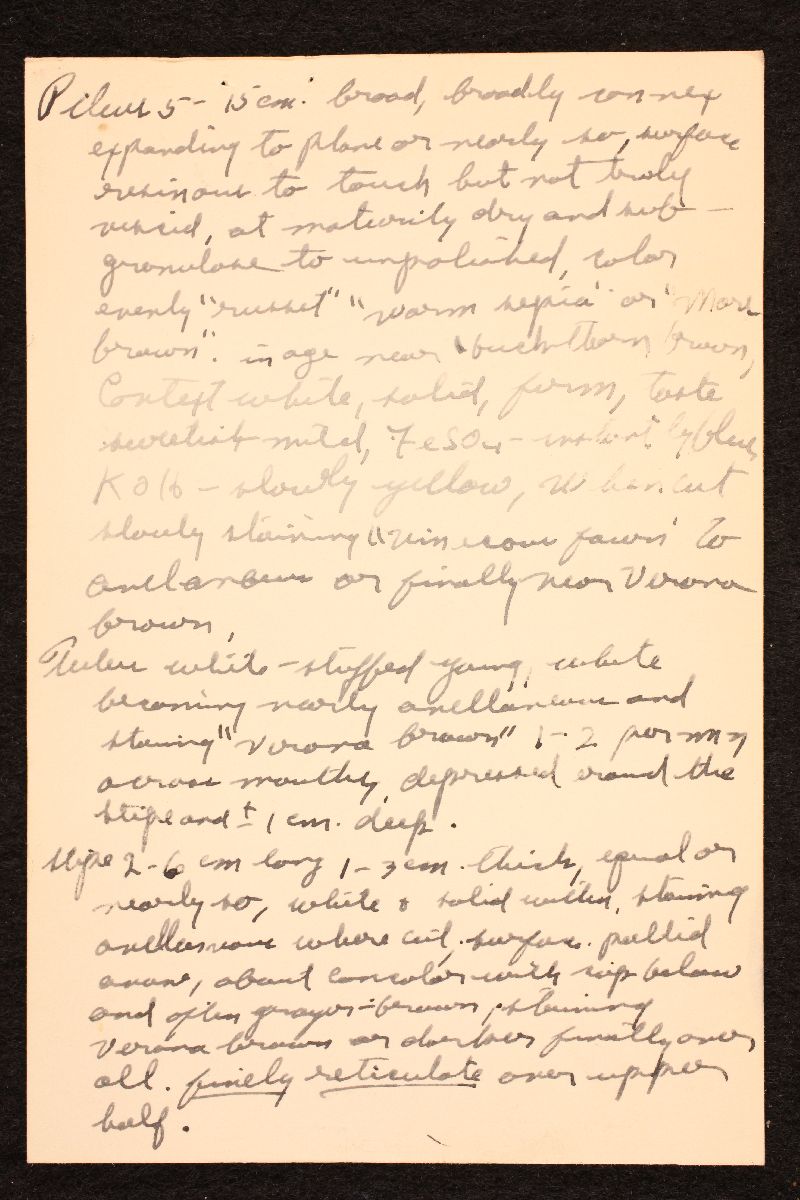 Pileus 5-15 cm. broad, broadly convex
expanding to plane or nearly so, surface
resinous to touch but not truly
viscid, at maturity dry and sub-
granulose to unpolished, color
evenly "russet" "warm sepia" or "Mars
brown". in age near "buckthorn brown,
Context white, solid, firm, taste
sweetish mild, FeSO4 - instantly blue,
KOH - slowly yellow, When cut
slowly staining "vinaceous fawn" to
avellaneous or finally near Verona
brown,
Tubes white-stuffed young, white
becoming nearly avellaneous and
staining "Verona brown" 1-2 per mm
across mouths, depressed around the
stipe and ± 1 cm. deep.
stipe 2-6 cm long 1-3 cm. thick, equal or
nearly so, white & solid within, staining
avellaneous where cut, surface pallid
above, about concolor with cap below
and often grayer-brown, staining
Verona brown or darker finally over
all. finely reticulate over upper
half.